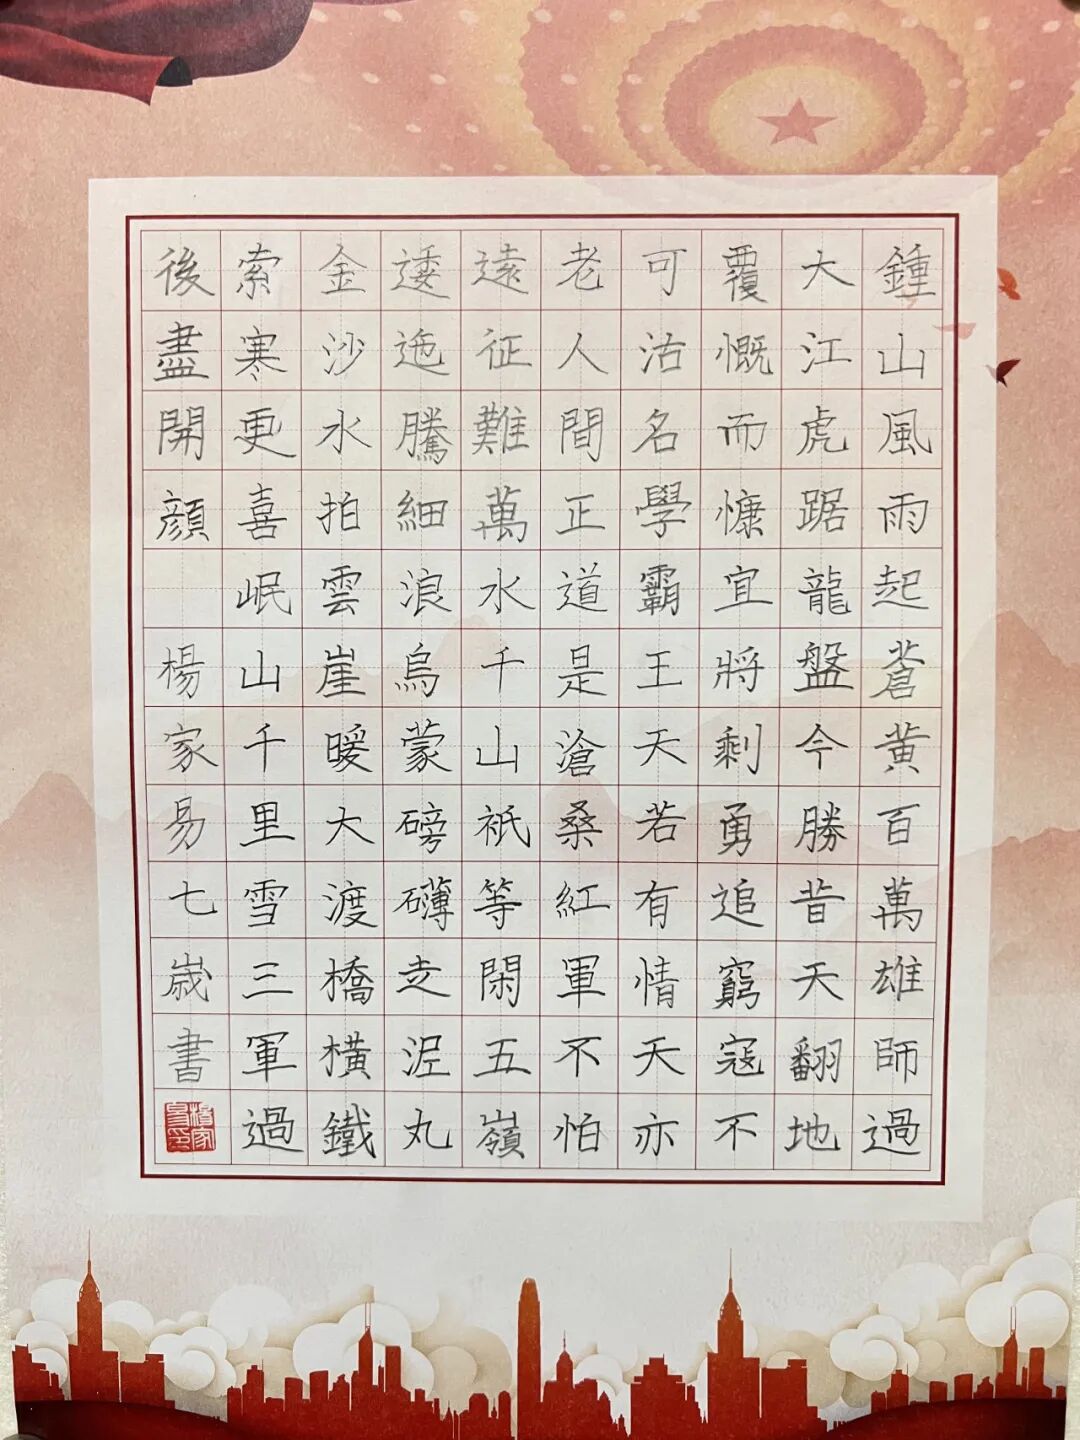 鍾山風雨起蒼黃百萬雄師過
大江虎踞龍盤今勝昔天翻地
覆慨而慷宜將剩勇追窮寇不
可沽名學霸王天若有情天亦
老人間正道是滄桑紅軍不怕
遠征難萬水千山衹等閑五嶺
逶迤騰細浪烏蒙磅礴走泥丸
金沙水拍雲崖暖大渡橋橫鐵
索寒更喜岷山千里雪三軍過
後盡開顔 楊家易七歲書
楊家易印